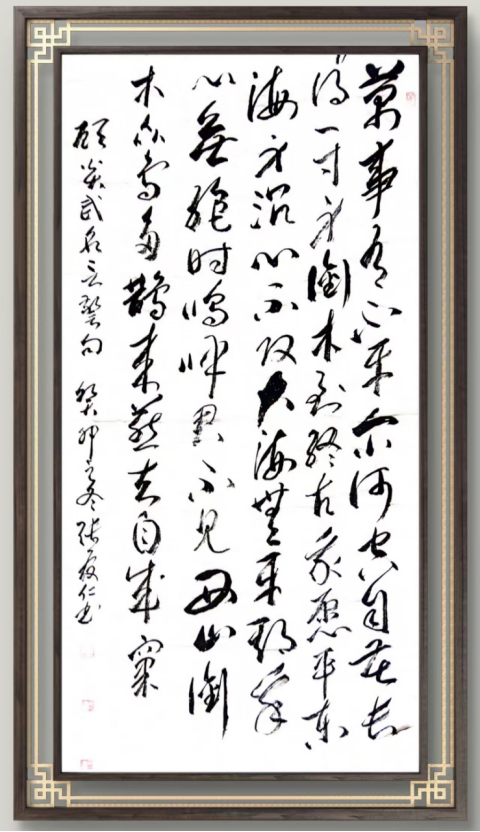 萬事有不平尔何空自苦长
将一寸身衔木到终古我愿平东
海身沉心不改大海無平期我
心無绝时鳴呼君不见西山衔
木众鸟多鹊来燕去自成窠
顾炎武名言警句 癸卯之冬张仁书